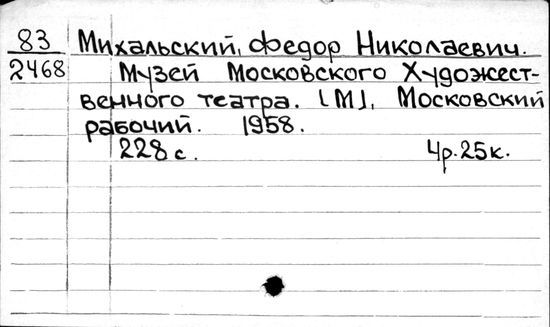 83 Михальский, Федор Николаевич.
2468 Музей Московского Художест-
венного театра. [М], Московский
рабочий. 1958.
228 с. 4р.25к.